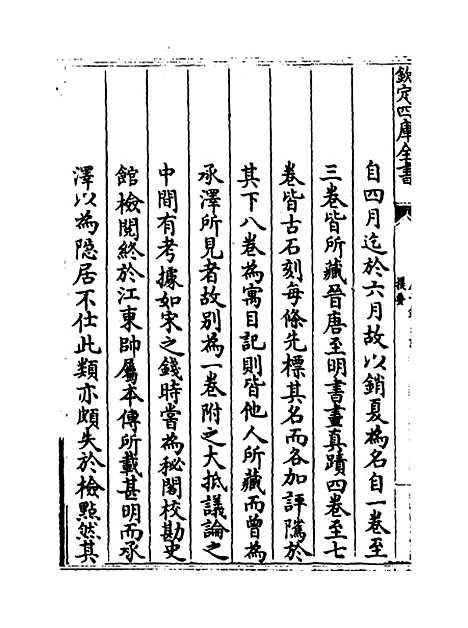 欽定四庫全書
提要
自四月迄於六月故以銷夏為名自一卷至
三卷皆所藏晉唐至明書畫真蹟四卷至七
卷皆古石刻每條先標其名而各加評隲於
其下八卷為寓目記則皆他人所藏而曾為
承澤所見者故别為一卷附之大抵議論之
中間有考據如宋之錢時嘗為秘閣校勘史
館檢閱終於江東帥屬本傳所載甚明而承
澤以為隐居不仕此類亦頗失於檢㸃然其